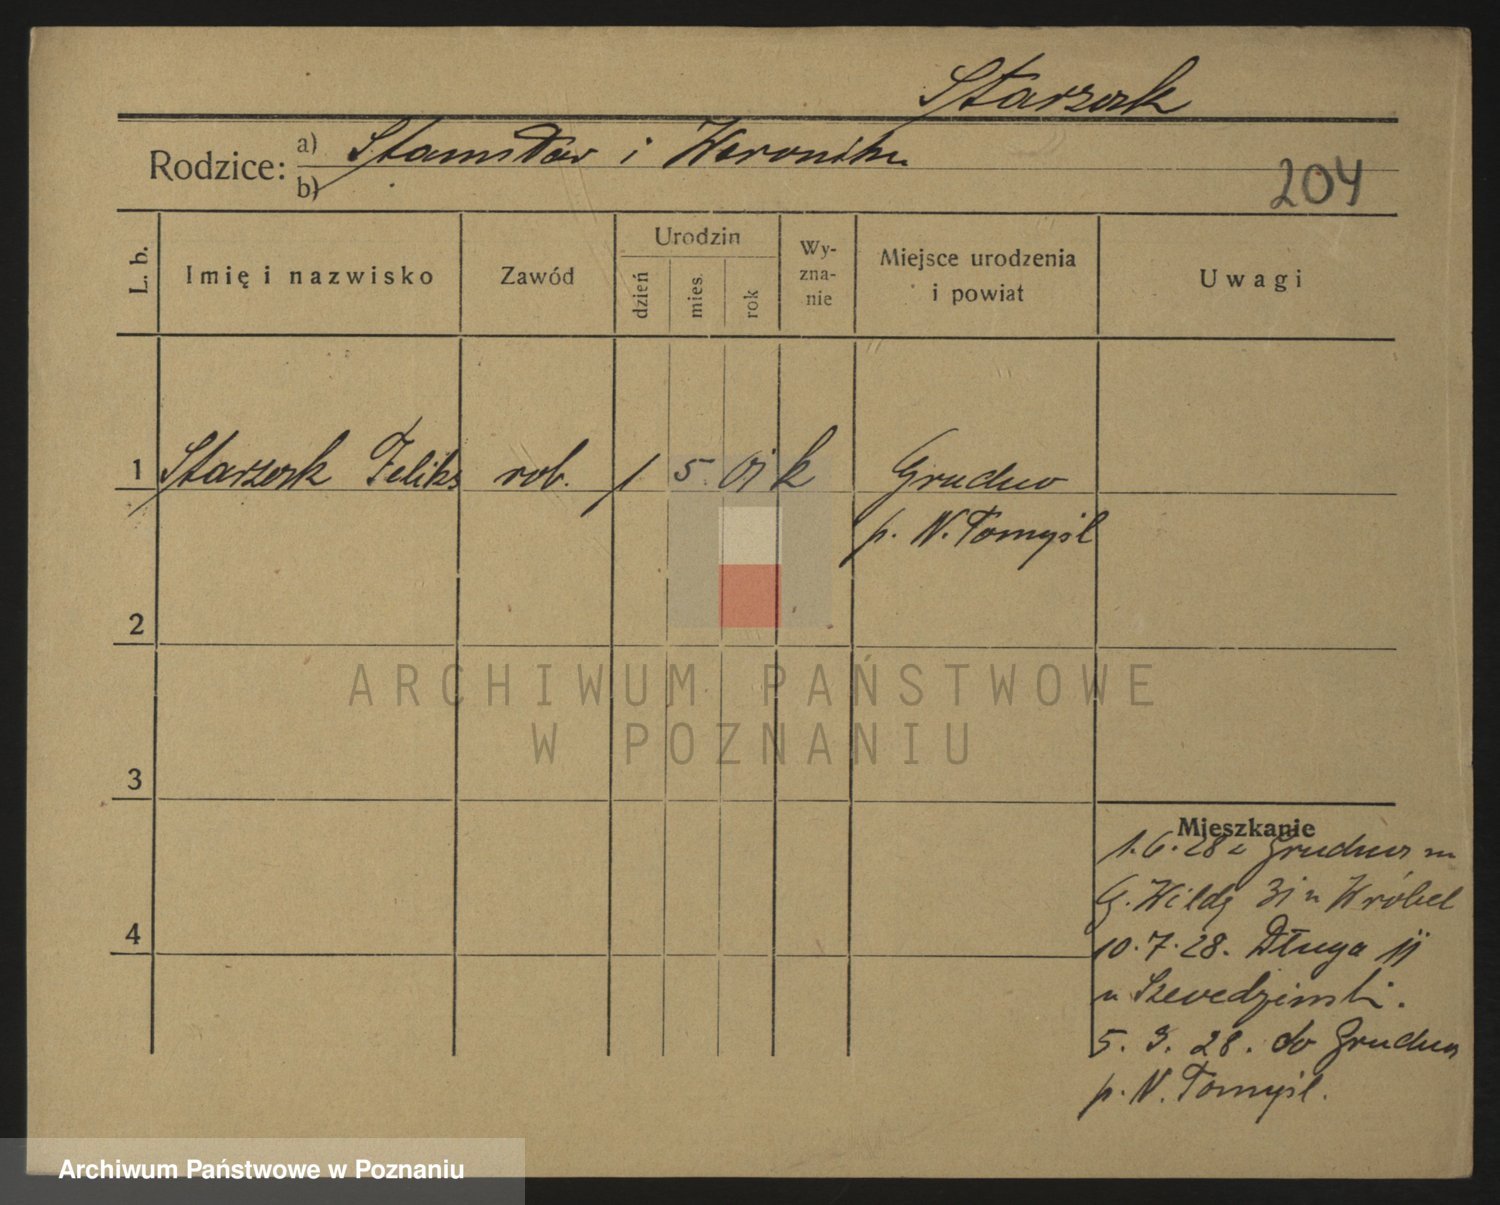 Starzonk
Rodzice: a) Stanisław i Weronika
b)
204
L. b.
Imię i nazwisko
Zawód
Urodzin
dzień
mies.
rok
Wy-
zna-
nie
Miejsce urodzenia
i powiat
Uwagi
1 Starzonk Feliks rob. 1 5. 01 k Grudno
p. N. Tomyśl
2
3
4
Mieszkanie
1.6.28 z Grudna na
G. Wildę 31 u Wróbel
10.7.28. Długa 11
u
5. 28. do Grudna
p. N. Tomyśl.
ARCHIWUM PAŃSTWOWE
W POZNANIU
Archiwum Państwowe w Poznaniu